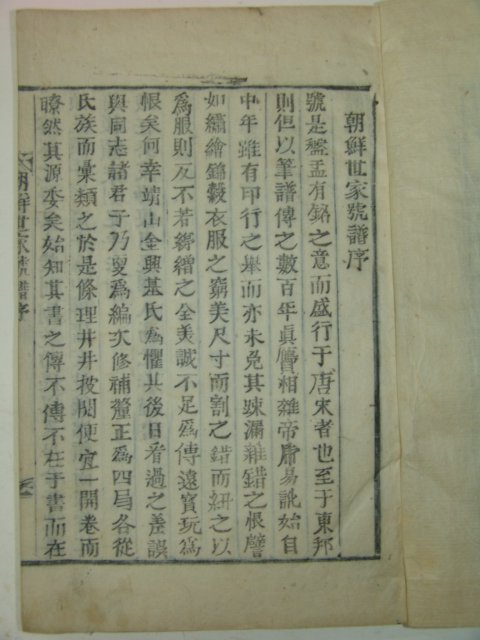 朝鮮世家號譜序
號是盤盂有銘之意而盛行于唐宋者也至于東邦
則但以筆譜傳之數百年眞贋相雜帝虎易訛始自
中年雖有印行之擧而亦未免其疎漏雜錯之恨譬
如繡繪錦縠衣服之窮美尺寸而割之錯而紐之以
爲服則反不若綈繒之全美誠不足爲傳遠寶玩爲
恨矣何幸靖山金興基氏爲懼其後日看過之差誤
與同志諸君子乃叟爲編次修補釐正爲四局各從
氏族而彙類之於是條理井井披閱便宜一開卷而
瞭然其源委矣始知其書之傳不傳不在于書而在
朝鮮世家號譜序